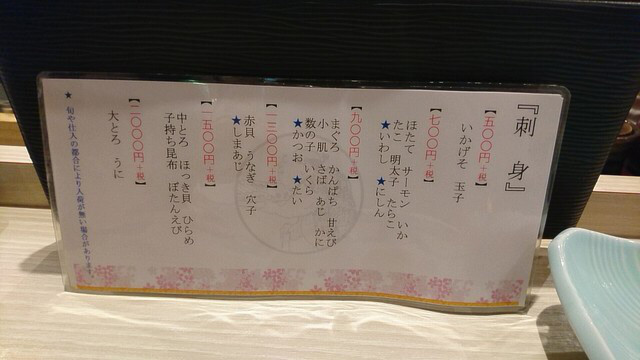 『刺身』
【五〇〇円+税】
いかげそ 玉子
【七〇〇円+税】
ほたて サーモン いか
たこ 明太子 たらこ
★いわし ★にしん
【九〇〇円+税】
まぐろ かんぱち 甘えび
小肌 さば あじ かに
数の子 いくら
★かつお ★たい
【一三〇〇円+税】
赤貝 うなぎ 穴子
★しまあじ
【一五〇〇円+税】
中とろ ほっき貝 ひらめ
子持ち昆布 ぼたんえび
【二〇〇〇円+税】
大とろ うに
★旬や仕入の都合により入荷が無い場合があります。